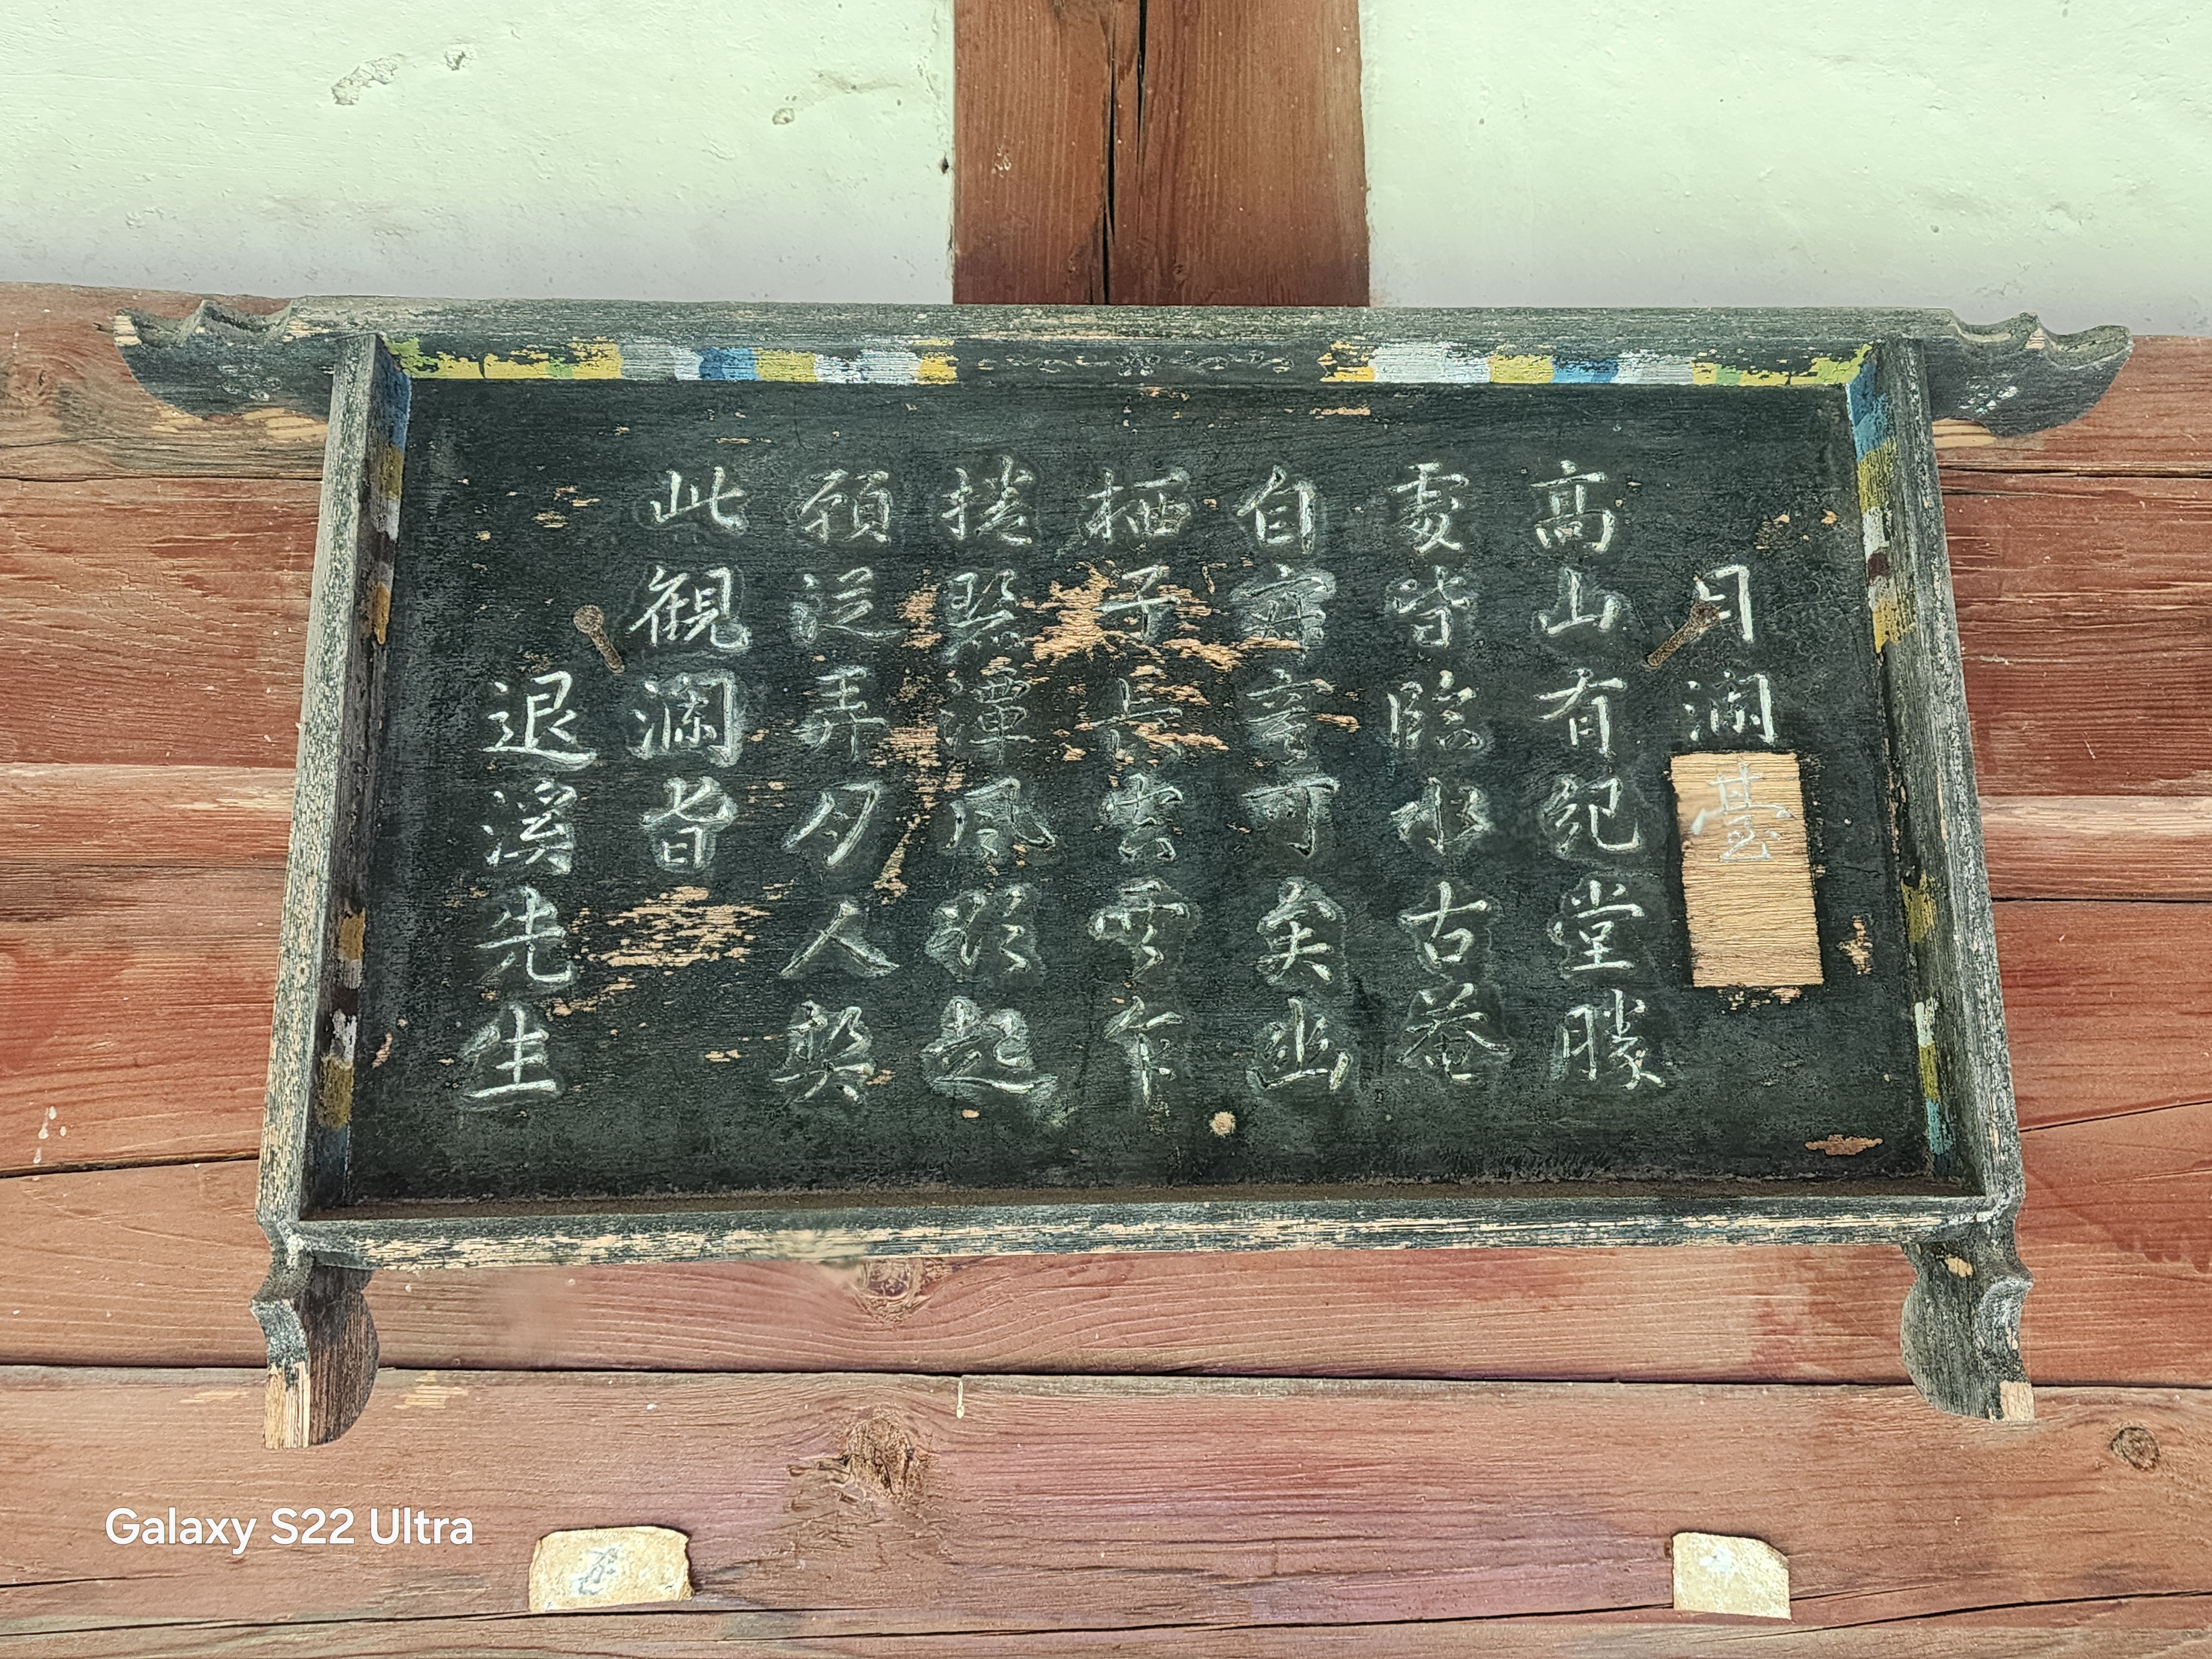 月瀾臺
高山有紀堂勝
處皆臨水古菴
自寂寞可矣幽
栖子長空雲乍
捲碧潭風欲起
願從弄月人契
此觀瀾旨
退溪先生
Galaxy S22 Ultra